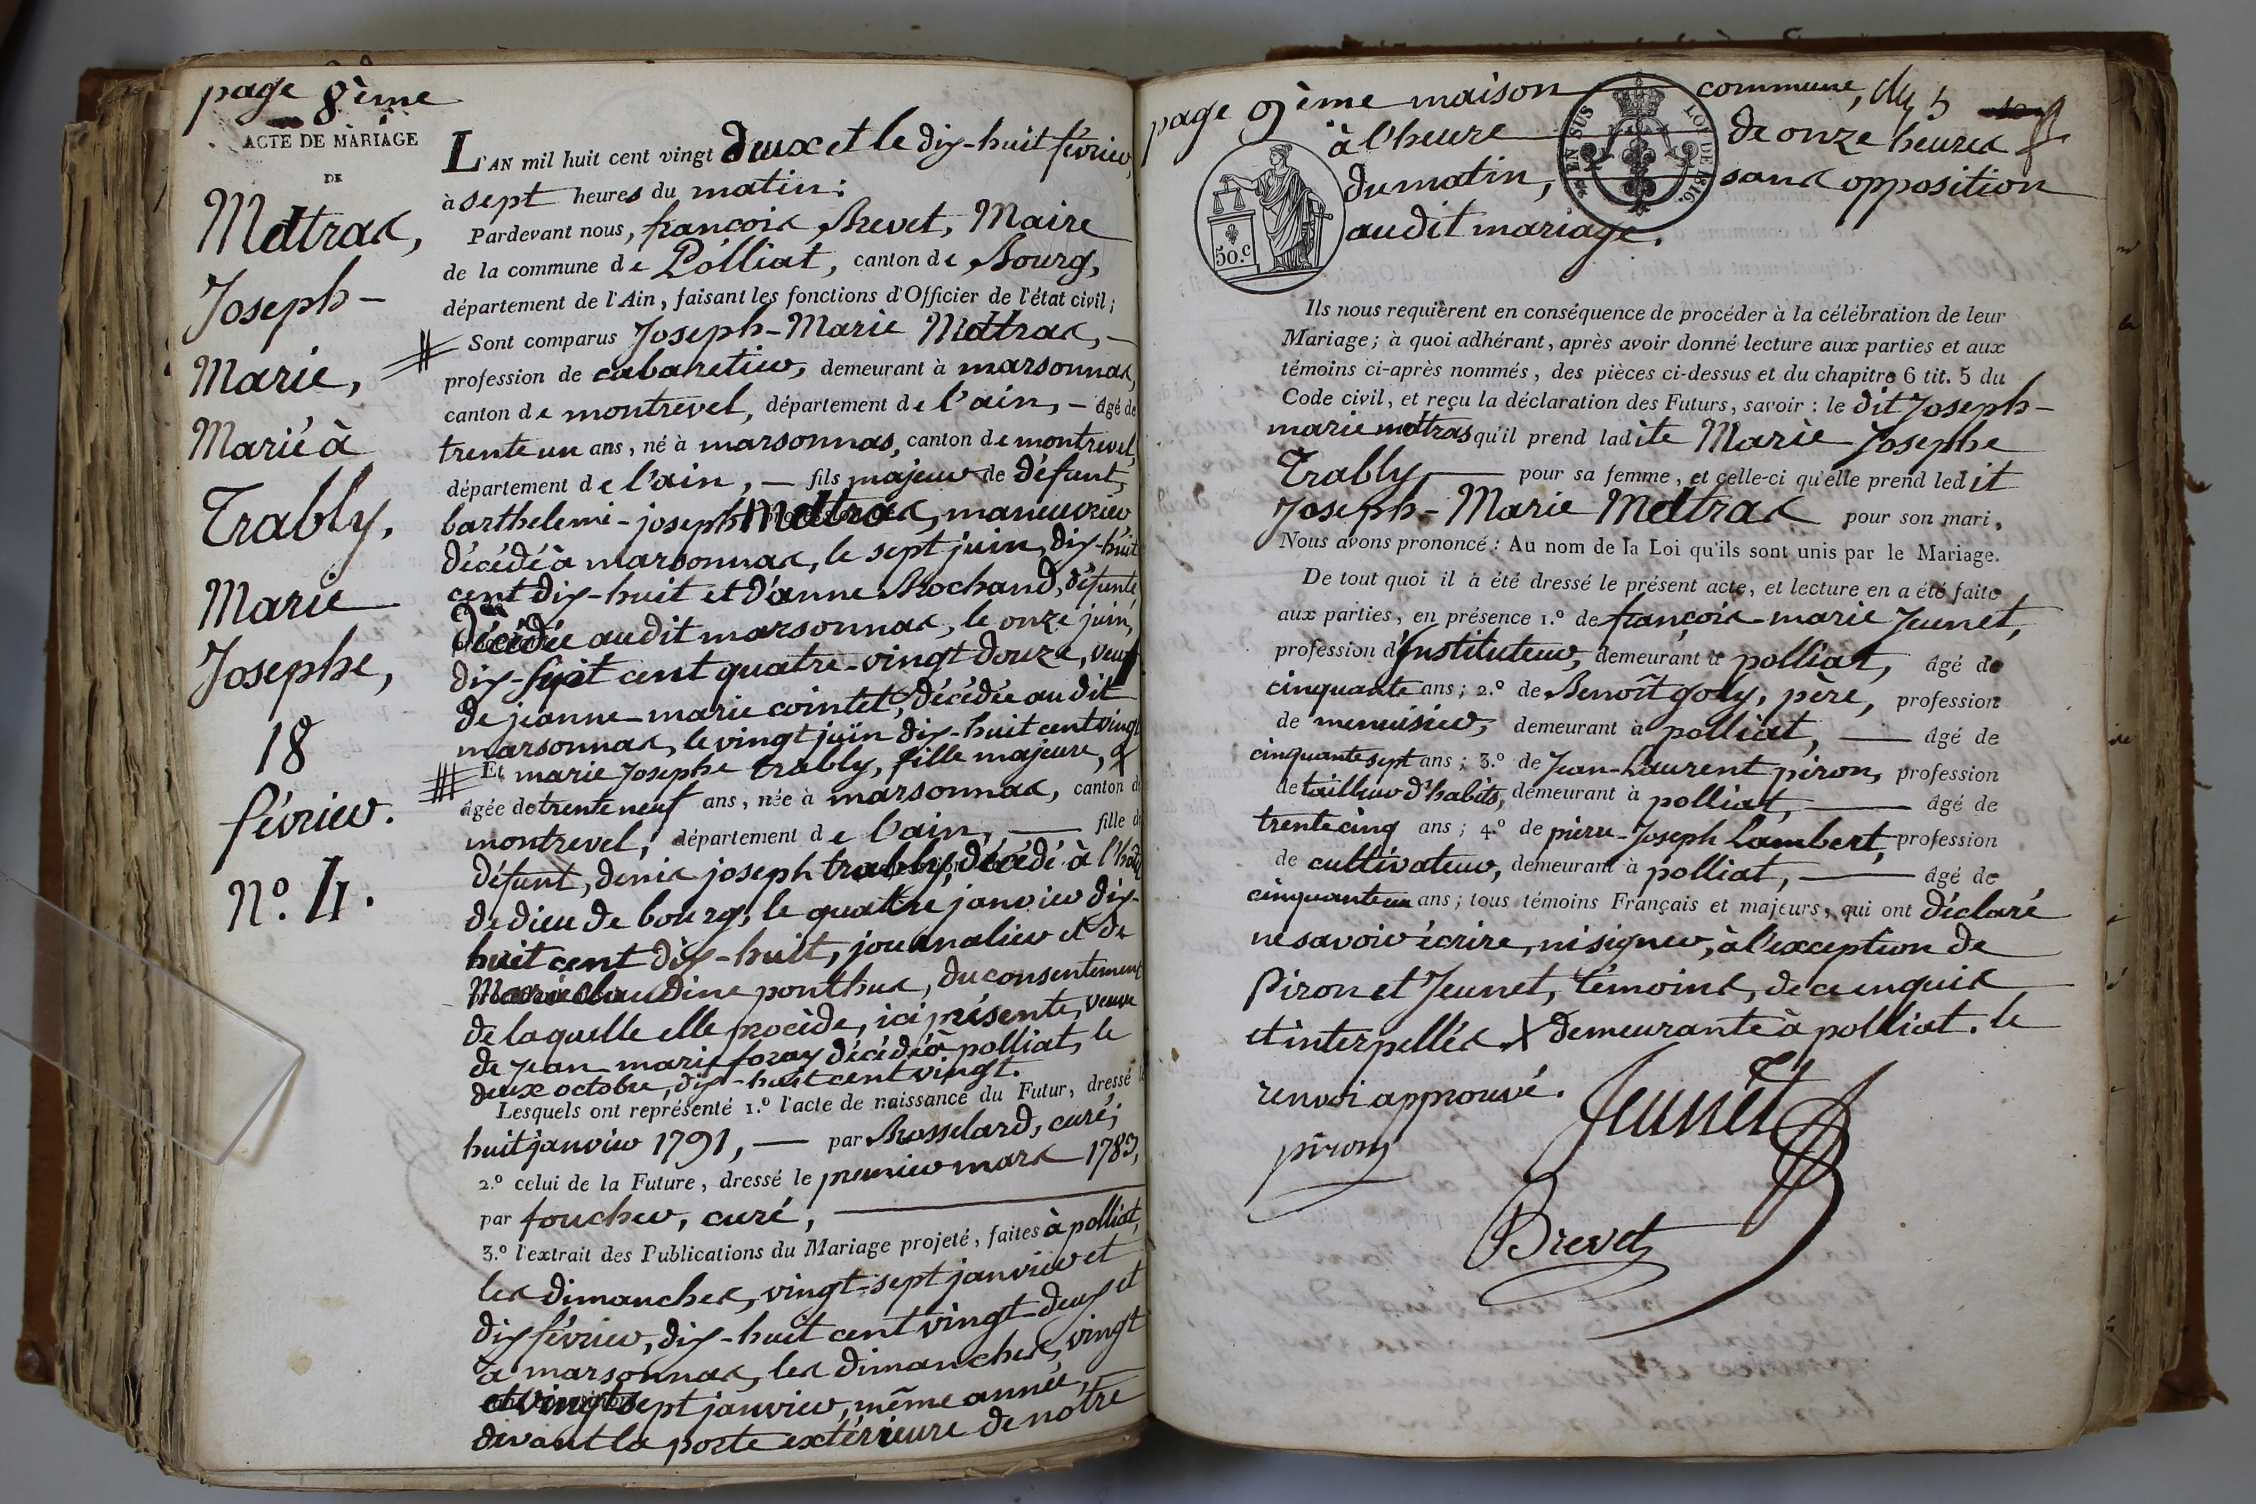 page 8ème
ACTE DE MARIAGE
DE
Mettras,
Joseph-
Marie,
Marié à
Trably,
Marie
Josephe,
18
février.
N.º 4.
L'AN mil huit cent vingt deux et le dix-huit février,
à sept heures du matin:
Pardevant nous, françois Brevet, Maire
de la commune de Polliat, canton de Bourg,
département de l'Ain, faisant les fonctions d'Officier de l'état civil;
Sont comparus Joseph-Marie Mettras, —
profession de cabaretier, demeurant à marsonnas,
canton de montrevel, département de l'ain, — âgé de
trente un ans, né à marsonnas, canton de montrevel,
département de l'ain, — fils majeur de défunt,
barthelemi-joseph Mettras, maneuvrier
décédé à marsonnas, le sept juin, dix-huit
cent dix-huit et d'anne Brochand, défunte,
décédée audit marsonnas, le onze juin,
dix-sept cent quatre-vingt douze, veuf
de jeanne-marie cointet, décédée au dit
marsonnas, le vingt juin dix-huit cent vingt
Et marie Josephe trably, fille majeure, X
âgée de trente neuf ans, née à marsonnas, canton de
montrevel, département de l'ain, — fille de
défunt, denis joseph trably, décédé à l'hôtel
de dieu de bourg, le quatre janvier dix-
huit cent dix-huit, journalier et de
Marie claudine ponthus, du consentement
de laquelle elle procède, ici présente, veuve
de Jean marie foray décédé à polliat, le
deux octobre, dix-huit cent vingt.
Lesquels ont représenté 1.º l'acte de naissance du Futur, dressé le
huit janvier 1791, — par Brosselard, curé;
2.º celui de la Future, dressé le premier mars 1783,
par foucher, curé, —
3.º l'extrait des Publications du Mariage projeté, faites à polliat,
les dimanches, vingt-sept janvier et
dix février, dix-huit cent vingt-deux et
à marsonnas, les dimanches, vingt
et vingt sept janvier, même année,
devant la porte extérieure de notre
page 9ème maison commune,
à l'heure de onze heures
du matin, sans opposition
audit mariage.
EN SUS LOI DE 1816.
50.c
Ils nous requièrent en conséquence de procéder à la célébration de leur
Mariage; à quoi adhérant, après avoir donné lecture aux parties et aux
témoins ci-après nommés, des pièces ci-dessus et du chapitre 6 tit. 5 du
Code civil, et reçu la déclaration des Futurs, savoir: le dit Joseph-
marie mettras qu'il prend ladite Marie Josephe
Trably — pour sa femme, et celle-ci qu'elle prend ledit
Joseph-Marie Mettras pour son mari,
Nous avons prononcé: Au nom de la Loi qu'ils sont unis par le Mariage.
De tout quoi il a été dressé le présent acte, et lecture en a été faite
aux parties, en présence 1.º de françois-marie Jeunet,
profession d'Instituteur, demeurant à polliat, âgé de
cinquante ans; 2.º de Benoît goly, père, profession
de menuisier, demeurant à polliat, — âgé de
cinquante sept ans; 3.º de Jean-Laurent piron, profession
de tailleur d'habits, demeurant à polliat, — âgé de
trente cinq ans; 4.º de pierre-Joseph Lambert, profession
de cultivateur, demeurant à polliat, — âgé de
cinquante un ans; tous témoins Français et majeurs, qui ont déclaré
ne savoir écrire, ni signer, à l'exception de
Piron et Jeunet, témoins, de ce enquis
et interpellés X demeurante à polliat. le
renvoi approuvé.
piron
Jeunet
Brevet